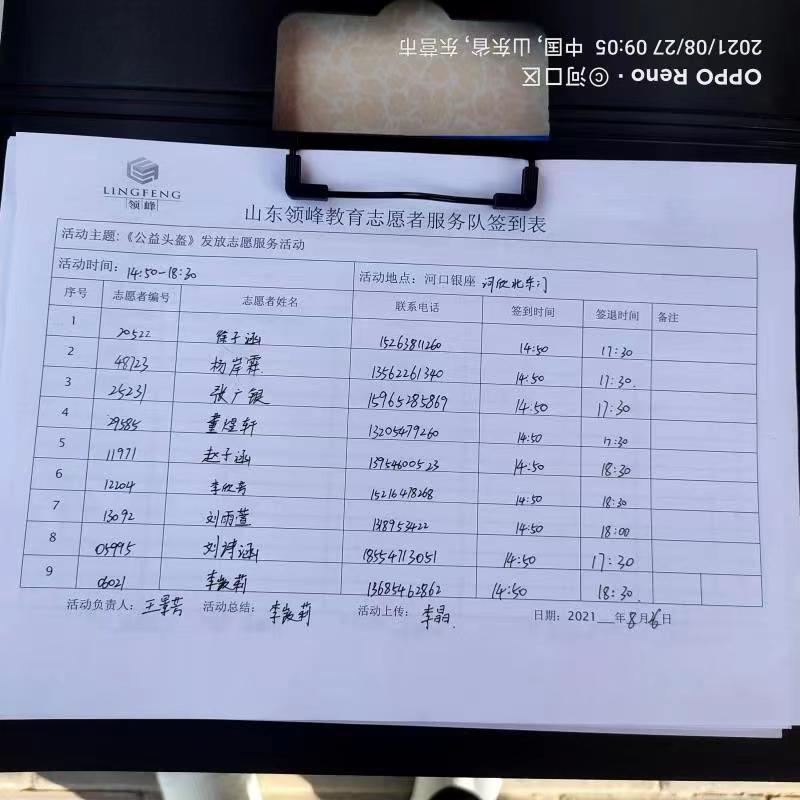 OPPO Reno · ©河口区
2021/08/27 09:05 中国, 山东省, 东营市
LINGFENG
领峰
山东领峰教育志愿者服务队签到表
活动主题:《公益头盔》发放志愿服务活动
活动时间: 14:50-18:30 活动地点: 河口银座 河欣北东门
序号 志愿者编号 志愿者姓名 联系电话 签到时间 签退时间 备注
1 20522 徐子涵 15263811260 14:50 17:30
2 48723 杨岸霖 13562261340 14:50 17:30.
3 25231 张广银 15965285869 14:50 17:30
4 29585 董煜轩 13205479260 14:50 17:30
5 11971 赵子涵 13954600523 14:50 18:30
6 12204 李欣 15216478268 14:50 18:30
7 13092 刘雨萱 1318953422 14:50 18:00
8 05995 刘津涵 18554713051 14:50 17:30
9 06021 李敏莉 13685462862 14:50 18:30
活动负责人: 王景芳 活动总结: 李敏莉 活动上传: 李晶. 日期: 2021__年8月16日